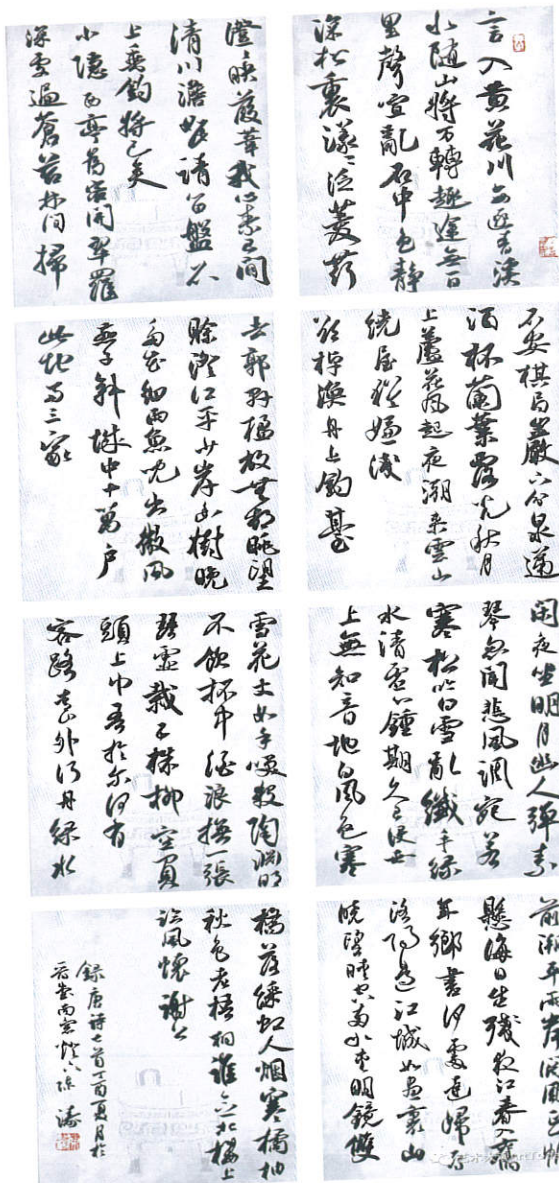 言入黄花川每逐青溪
水随山將万轉趣途無百
里聲喧亂石中色静
深松裏漾漾泛菱荇
澄映葭葦我心素已閒
清川澹如此請留盤石
上垂釣將已矣
小隱西亭為客開翠蘿
深處遍蒼苔林間掃
石安棋局巖下分泉遞
酒杯蘭葉露光秋月
上蘆花風起夜潮来雲山
繞屋猶嫌淺
欲棹漁舟上釣臺
去郭軒楹敞無村眺望
賒澄江平少岸幽樹晚
多花細雨魚兒出微風
燕子斜城中十萬户
此地兩三家
閑夜坐明月幽人彈素
琴忽聞悲風調宛若
寒松吟白雪亂纖手緑
水清虚心鍾期久已没世
上無知音地白風色寒
雪花大如手笑殺陶淵明
不飲杯中酒浪撫一張
琴虚栽五株柳空負
頭上巾吾於尔何有
客路青山外行舟緑水
前潮平兩岸闊風正帆
懸海日生殘夜江春入舊
年鄉書何處達歸雁
洛陽邊江城如畫裏山
曉望晴空兩水夾明鏡雙
橋落綵虹人烟寒橘柚
秋色老梧桐誰念北樓上
臨風懷謝公
録唐詩七首丁酉夏月於
南窗燈下